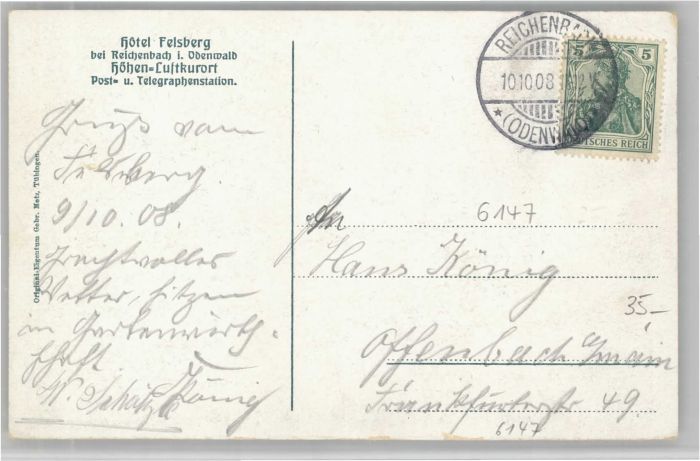 Hôtel Felsberg
bei Reichenbach i. Odenwald
Höhen-Luftkurort
Post- u. Telegraphenstation.
Original-Eigentum Gebr. Metz, Tübingen.
Gruß vom
Felsberg.
9/10. 08.
Prachtvolles
Wetter, sitzen
in Gartenwirth-
schaft
W. Schätzle König
REICHENBACH
10.10.08
(ODENWALD)
5 5
DEUTSCHES REICH
An
6147
Hans König
35-
Offenbach a/main
Frankfurterstr 49
6147